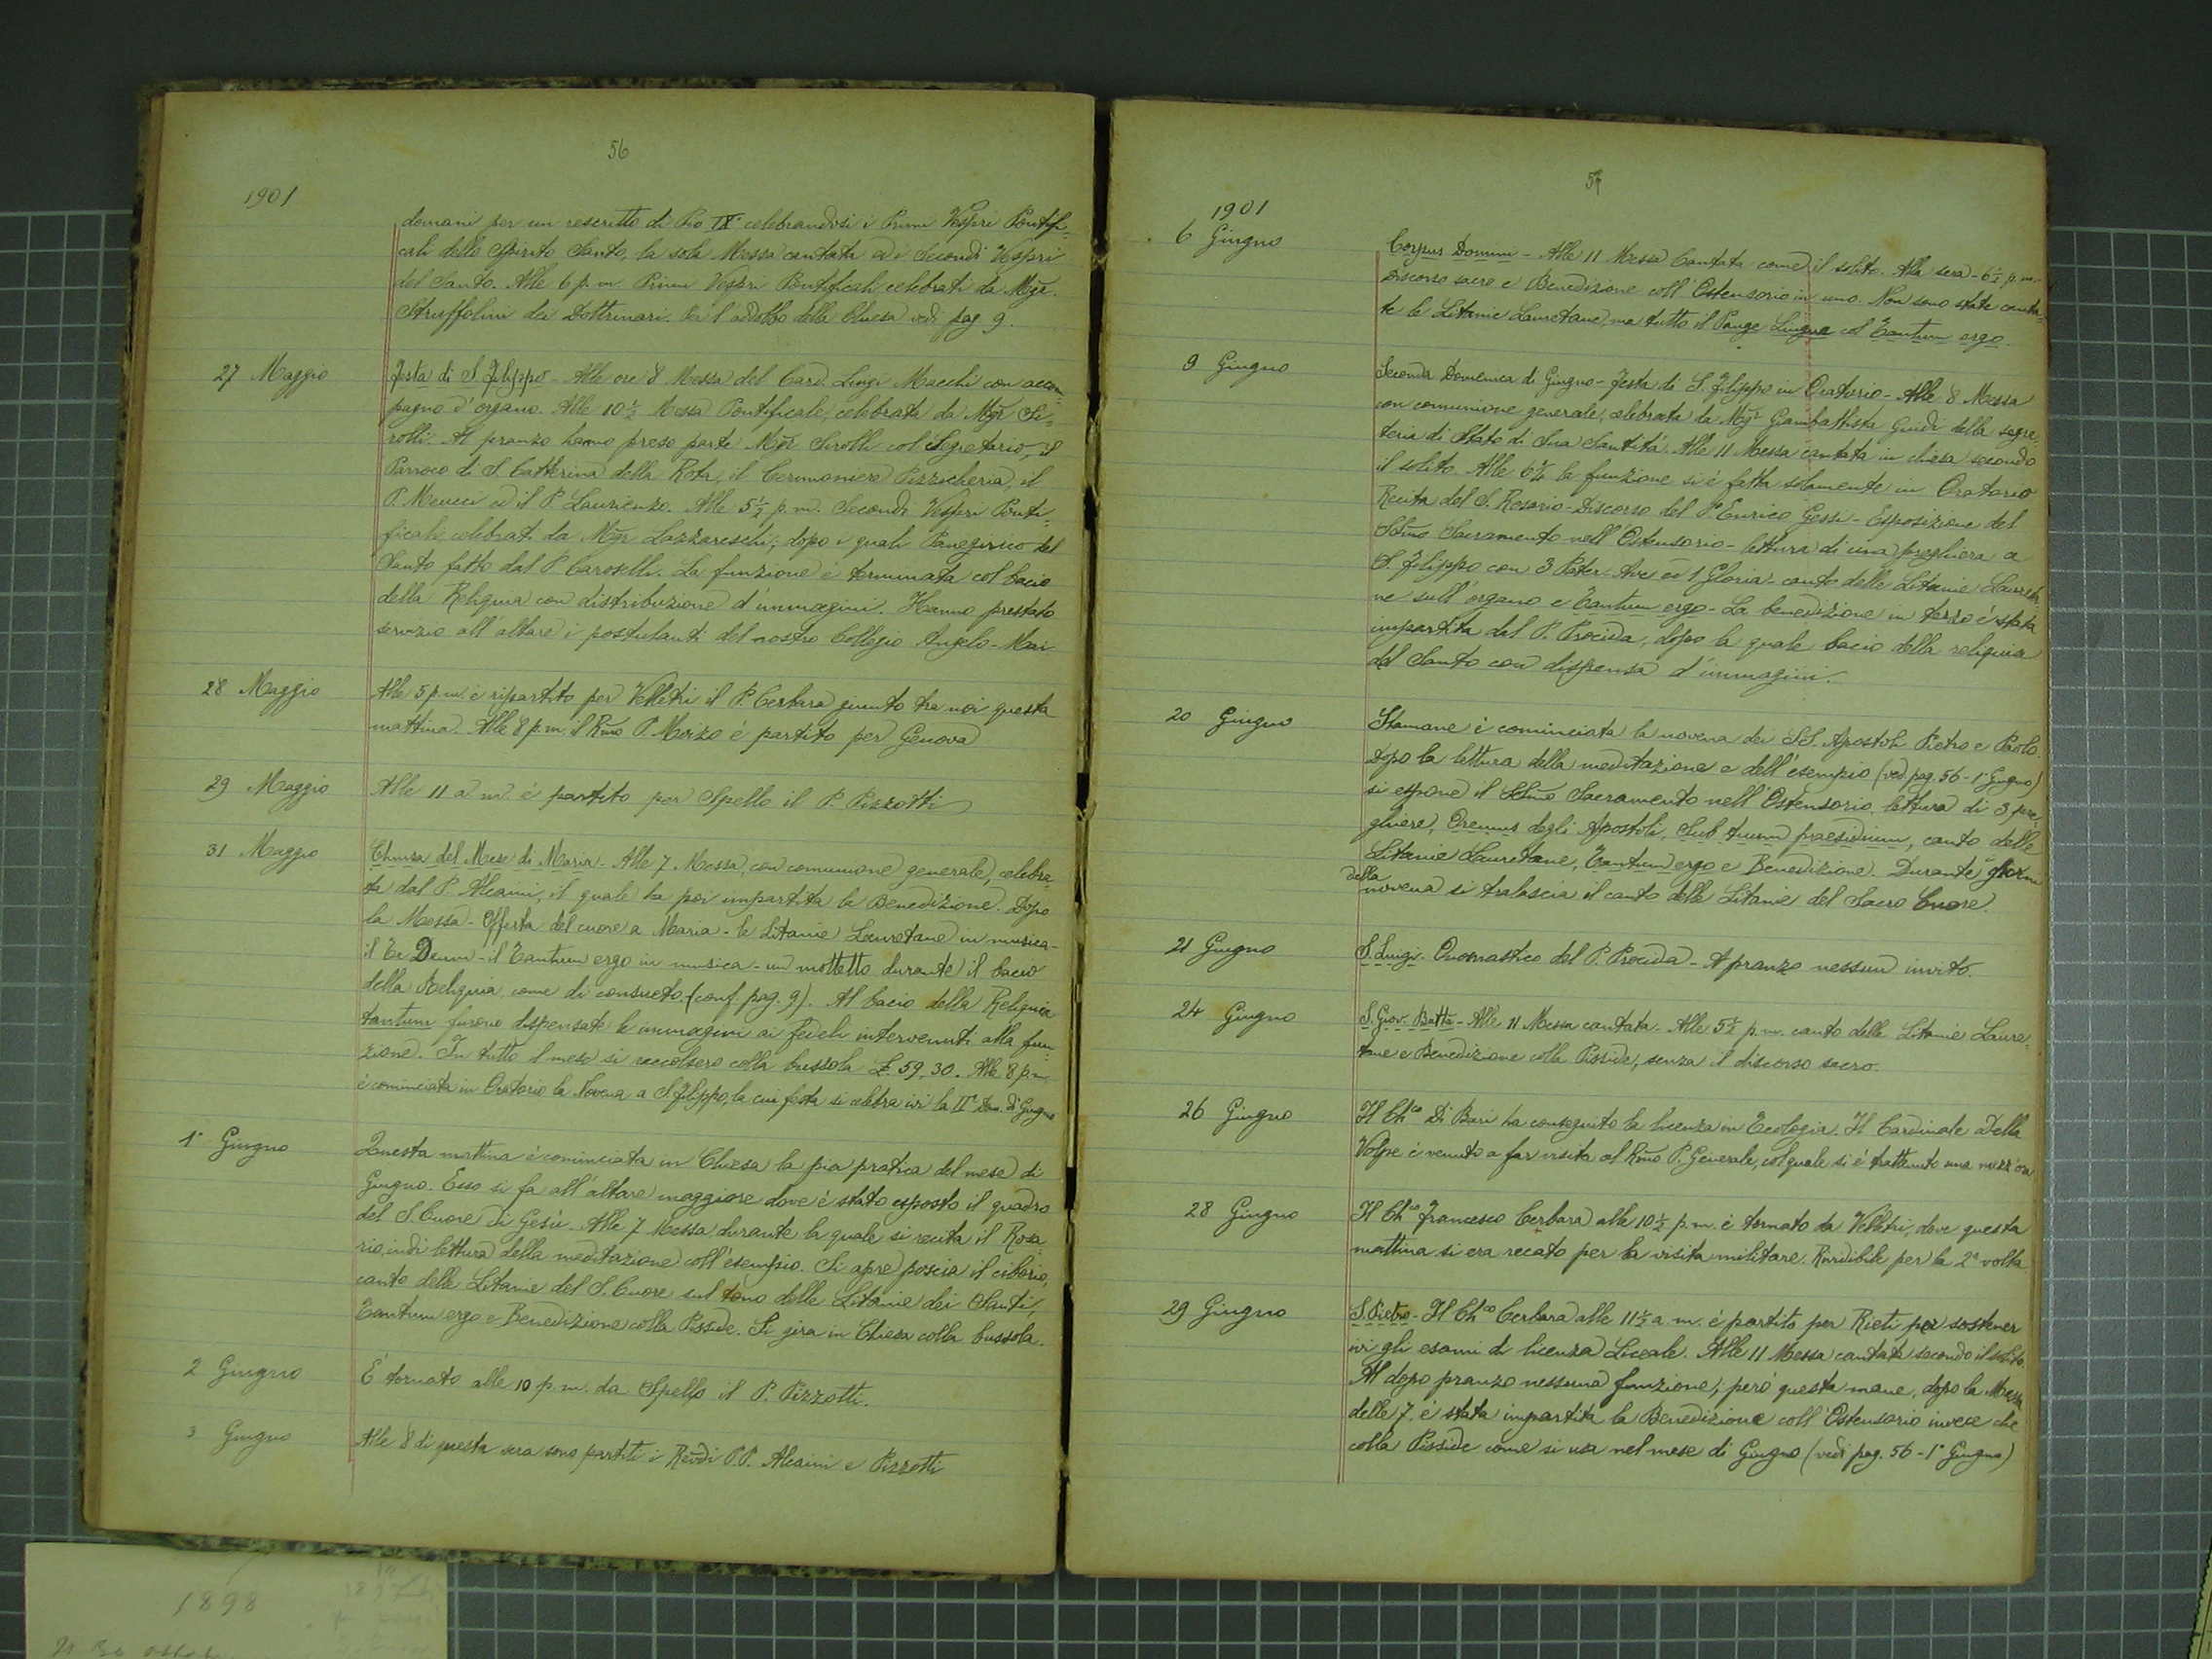 56
1901
domani per un rescritto di Pio IX° celebrandosi i Primi Vespri Pontifi=
cali dello Spirito Santo, la sola Messa cantata ed i Secondi Vespri
del Santo. Alle 6 p. m. Primi Vespri Pontificali celebrati da Mgr.
Struffolini dei Dottrinari. Per l'addobbo della Chiesa vedi pag. 9.
27 Maggio
Festa di S. Filippo - Alle ore 8 Messa del Card. Luigi Macchi con accom=
pagno d'organo. Alle 10 ½ Messa Pontificale, celebrata da Mgr Si=
rolli. Al pranzo hanno preso parte Mgr Sirolli col Segretario, il
Parroco di S. Catterina della Rota, il Cerimoniere Pizzicheria, il
P. Meucci ed il P. Laurienzo. Alle 5 ½ p. m. Secondi Vespri Ponti=
ficali celebrati da Mgr Lazzareschi; dopo i quali Panegirico del
Santo fatto dal P. Caroselli. La funzione è terminata col bacio
della Reliquia con distribuzione d'immagini. Hanno prestato
servizio all'altare i postulanti del nostro Collegio Angelo-Mai
28 Maggio
Alle 5 p. m. è ripartito per Velletri il P. Cerbara giunto tra noi questa
mattina. Alle 8 p. m. il Rmo P. Moizo è partito per Genova
29 Maggio
Alle 11 a. m. è partito per Spello il P. Pizzotti
31 Maggio
Chiusa del Mese di Maria - Alle 7 Messa con comunione generale, celebra=
ta dal P. Alcaini, il quale ha poi impartita la Benedizione. Dopo
la Messa - Offerta del cuore a Maria - le Litanie Lauretane in musica -
il Te Deum - il Tantum ergo in musica - un mottetto durante il bacio
della Reliquia, come di consueto. (conf. pag. 9). Al bacio della Reliquia
tantum furono dispensate le immagini ai fedeli intervenuti alla fun=
zione. In tutto il mese si raccolsero colla bussola £. 59,30. Alle 8 p. m.
è cominciata in Oratorio la Novena a S. Filippo, la cui festa si celebra ivi la IIª Dom. di Giugno
1° Giugno
Questa mattina è cominciata in Chiesa la pia pratica del mese di
Giugno. Esso si fa all'altare maggiore dove è stato esposto il quadro
del S. Cuore di Gesù. Alle 7 Messa, durante la quale si recita il Rosa=
rio, indi lettura della meditazione coll'esempio. Si apre poscia il ciborio,
canto delle Litanie del S. Cuore sul tono delle Litanie dei Santi,
Tantum ergo e Benedizione colla Pisside. Si gira in Chiesa colla bussola.
2 Giugno
È tornato alle 10 p. m. da Spello il P. Pizzotti.
3 Giugno
Alle 8 di questa sera sono partiti i Revdi P.P. Alcaini e Pizzotti
57
1901
6 Giugno
Corpus Domini - Alle 11 Messa Cantata come il solito. Alla sera - 6 ½ p. m. -
Discorso sacro e Benedizione coll'Ostensorio in uno. Non sono state canta=
te le Litanie Lauretane, ma tutto il Pange Lingua col Tantum ergo.
9 Giugno
Seconda Domenica di Giugno - Festa di S. Filippo in Oratorio - Alle 8 Messa
con comunione generale, celebrata da Mgr Giambattista Guidi della segre=
teria di Stato di Sua Santità. Alle 11 Messa cantata in chiesa secondo
il solito. Alle 6 ½ la funzione si è fatta solamente in Oratorio
Recita del S. Rosario - Discorso del P. Enrico Gessi - Esposizione del
SSmo Sacramento nell'Ostensorio - lettura di una preghiera a
S. Filippo con 3 Pater - Ave ed 1 Gloria - canto delle Litanie Laureta=
ne sull'organo e Tantum ergo - La benedizione in terzo è stata
impartita dal P. Procida, dopo la quale bacio della reliquia
del Santo con dispensa d'immagini.
20 Giugno
Stamane è cominciata la novena dei SS. Apostoli Pietro e Paolo.
Dopo la lettura della meditazione e dell'esempio (ved. pag. 56 - 1° Giugno)
si espone il SSmo Sacramento nell'Ostensorio, lettura di 3 pre=
ghiere, Oremus degli Apostoli, Sub tuum praesidium, canto delle
Litanie Lauretane, Tantum ergo e Benedizione. Durante i giorni
della novena si tralascia il canto delle Litanie del Sacro Cuore.
21 Giugno
S. Luigi. Onomastico del P. Procida - A pranzo nessun invito.
24 Giugno
S. Giov. Batta - Alle 11 Messa cantata - Alle 5 ½ p. m. canto delle Litanie Laure=
tane e Benedizione colla Pisside, senza il discorso sacro.
26 Giugno
Il Chco Di Bari ha conseguito la licenza in Teologia. Il Cardinale Della
Volpe è venuto a far visita al Rmo P. Generale, col quale si è trattenuto una mezz'ora
28 Giugno
Il Chco Francesco Cerbara alle 10 ½ p. m. è tornato da Velletri, dove questa
mattina si era recato per la visita militare. Rivedibile per la 2ª volta.
29 Giugno
S. Pietro - Il Chco Cerbara alle 11 ½ a. m. è partito per Rieti per sostener
ivi gli esami di licenza Liceale. Alle 11 Messa cantata secondo il solito.
Al dopo pranzo nessuna funzione; però questa mane, dopo la Messa
delle 7, è stata impartita la Benedizione coll'Ostensorio invece che
colla Pisside come si usa nel mese di Giugno (vedi pag. 56 - 1° Giugno)
1898